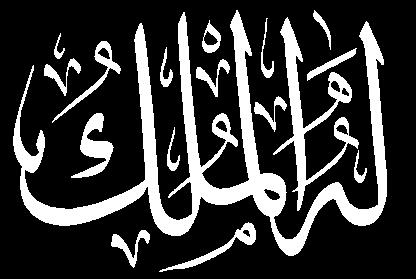 لَهُ الْمُلْكُ